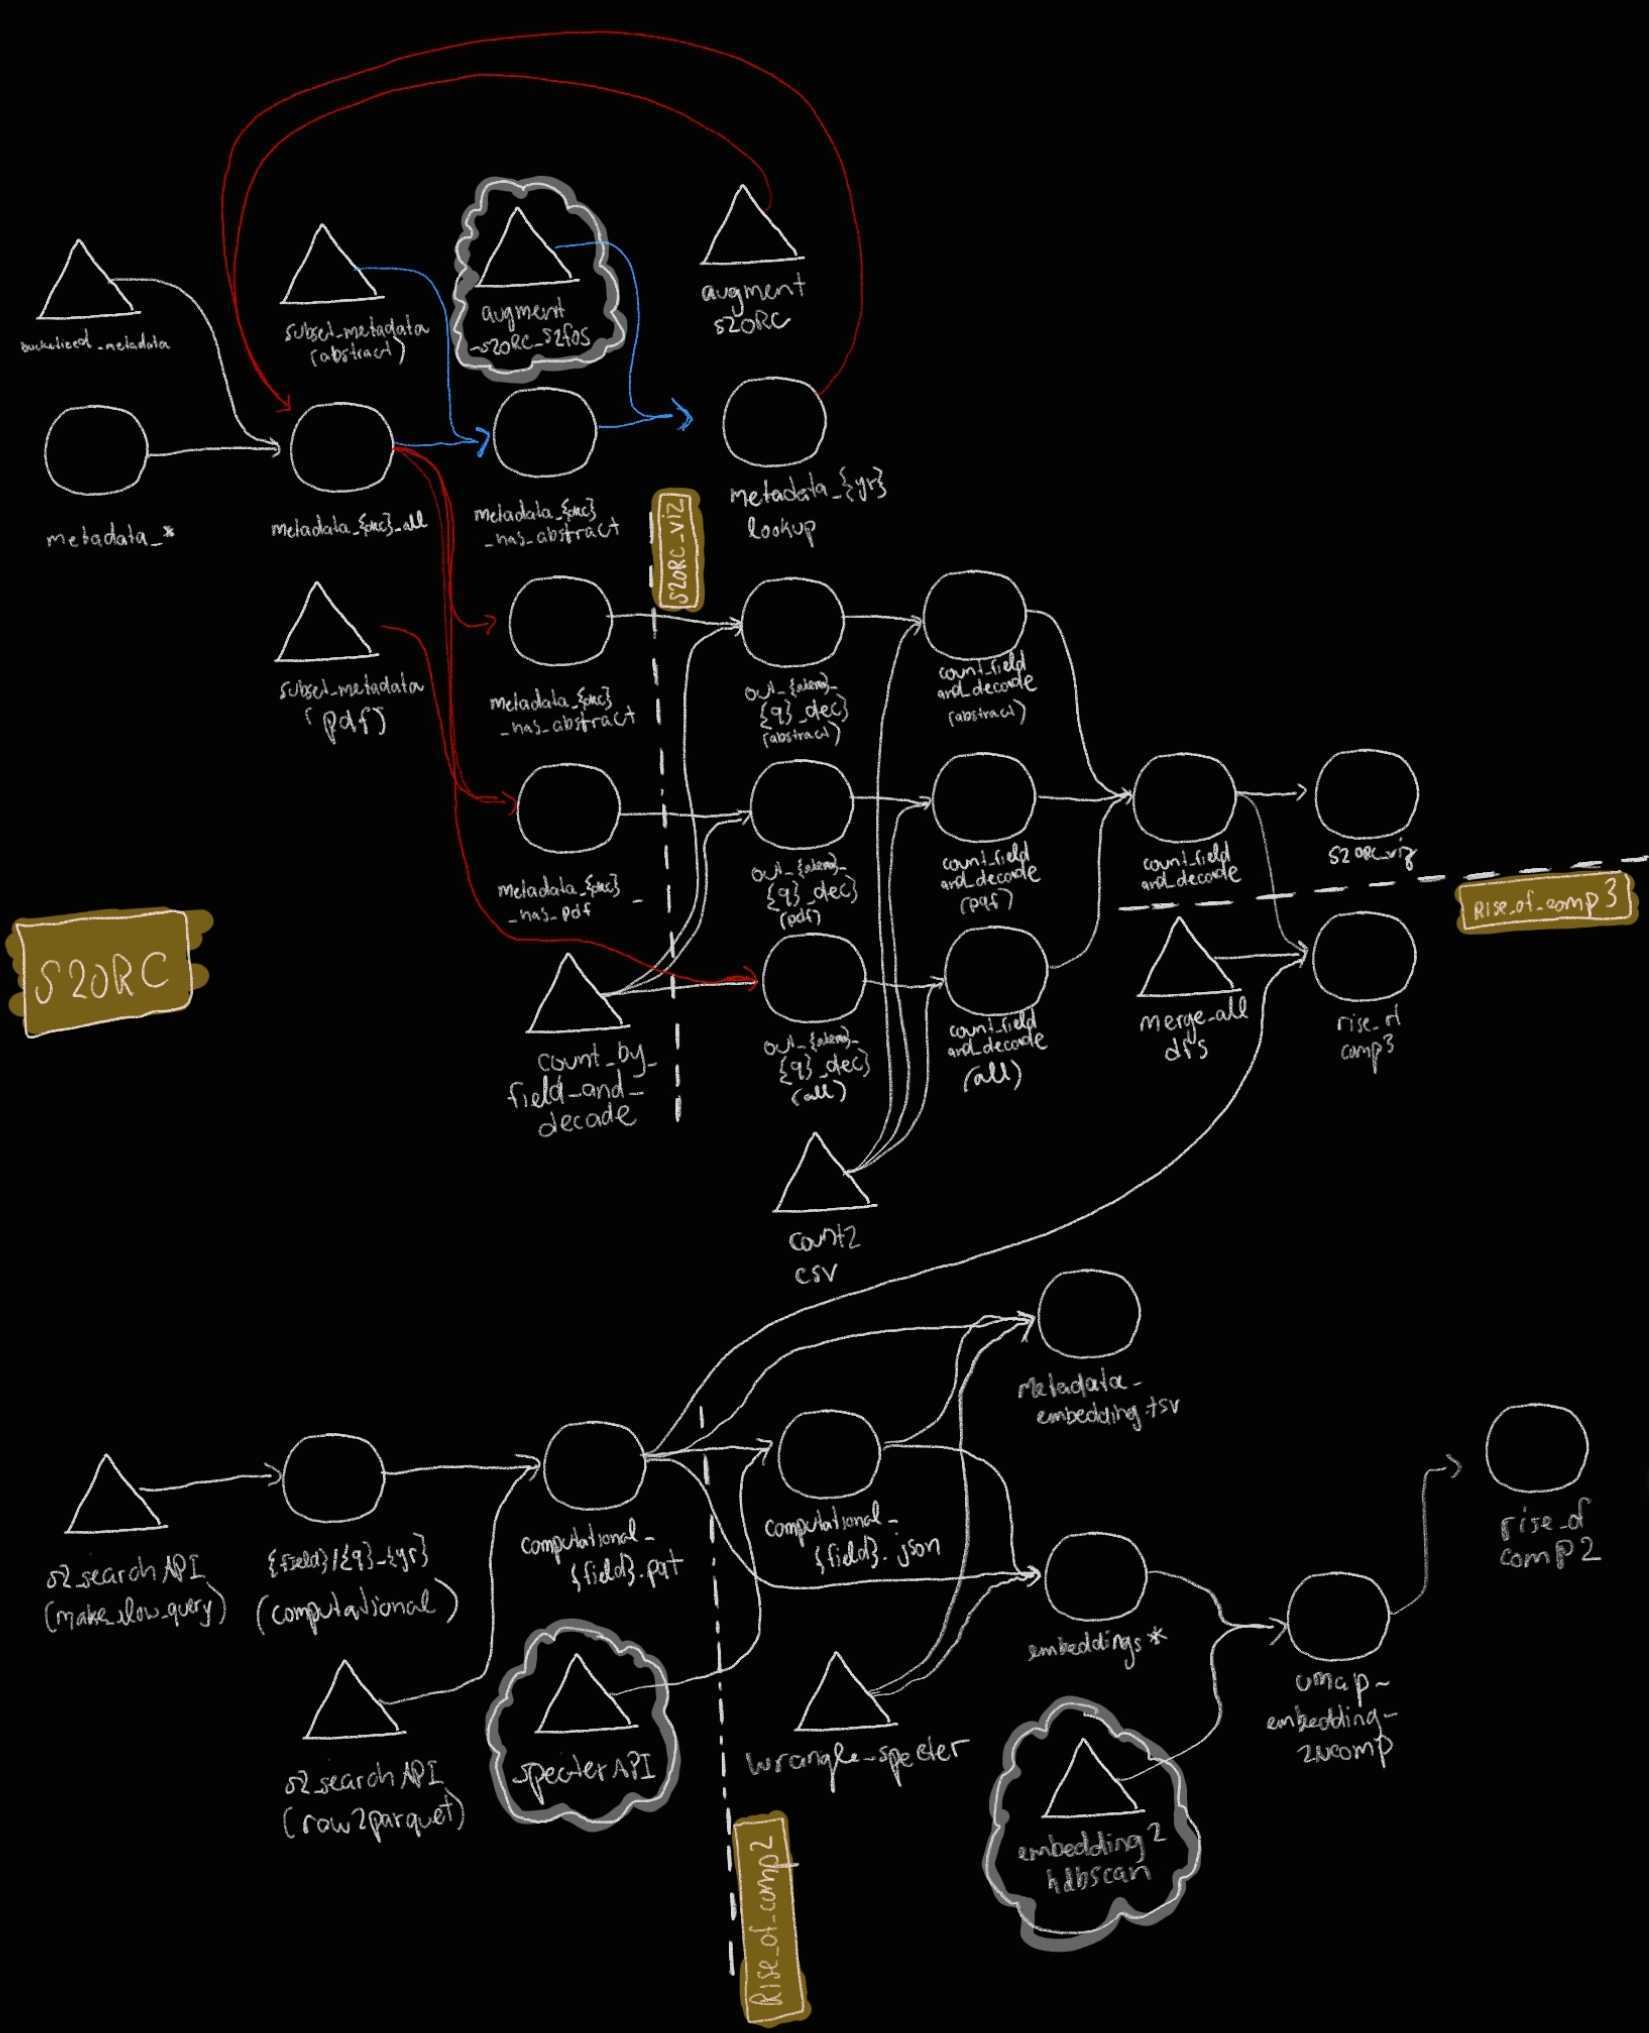 augment
s2ORC
augment
_s2ORC_s2fos
subset_metadata
(abstract)
bucketized_metadata
metadata_*
metadata_{dec}_all
metadata_{dec}
_has_abstract
metadata_{yr}
lookup
S2ORC_viz
subset_metadata
(pdf)
metadata_{dec}
_has_abstract
out_{stems}_
{q}_dec}
(abstract)
count_field
and_decade
(abstract)
metadata_{dec}_
_has_pdf
out_{stems}_
{q}_dec}
(pdf)
count_field
and_decade
(pdf)
count_field
and_decade
S2ORC_viz
Rise_of_comp3
S2ORC
count_by_
field_and_
decade
out_{stems}_
{q}_dec}
(all)
count_field
and_decade
(all)
merge_all
dfs
rise_of
comp3
count2
csv
metadata_
embedding.tsv
s2_searchAPI
(make_slow_query)
{field}/{q}_{yr}
(computational)
computational_
{field}.pqt
computational_
{field}.json
rise_of
comp2
embeddings*
umap_
embedding_
2Ncomp
s2_searchAPI
(row2parquet)
specterAPI
wrangle_specter
embedding2
hdbscan
Rise_of_comp2